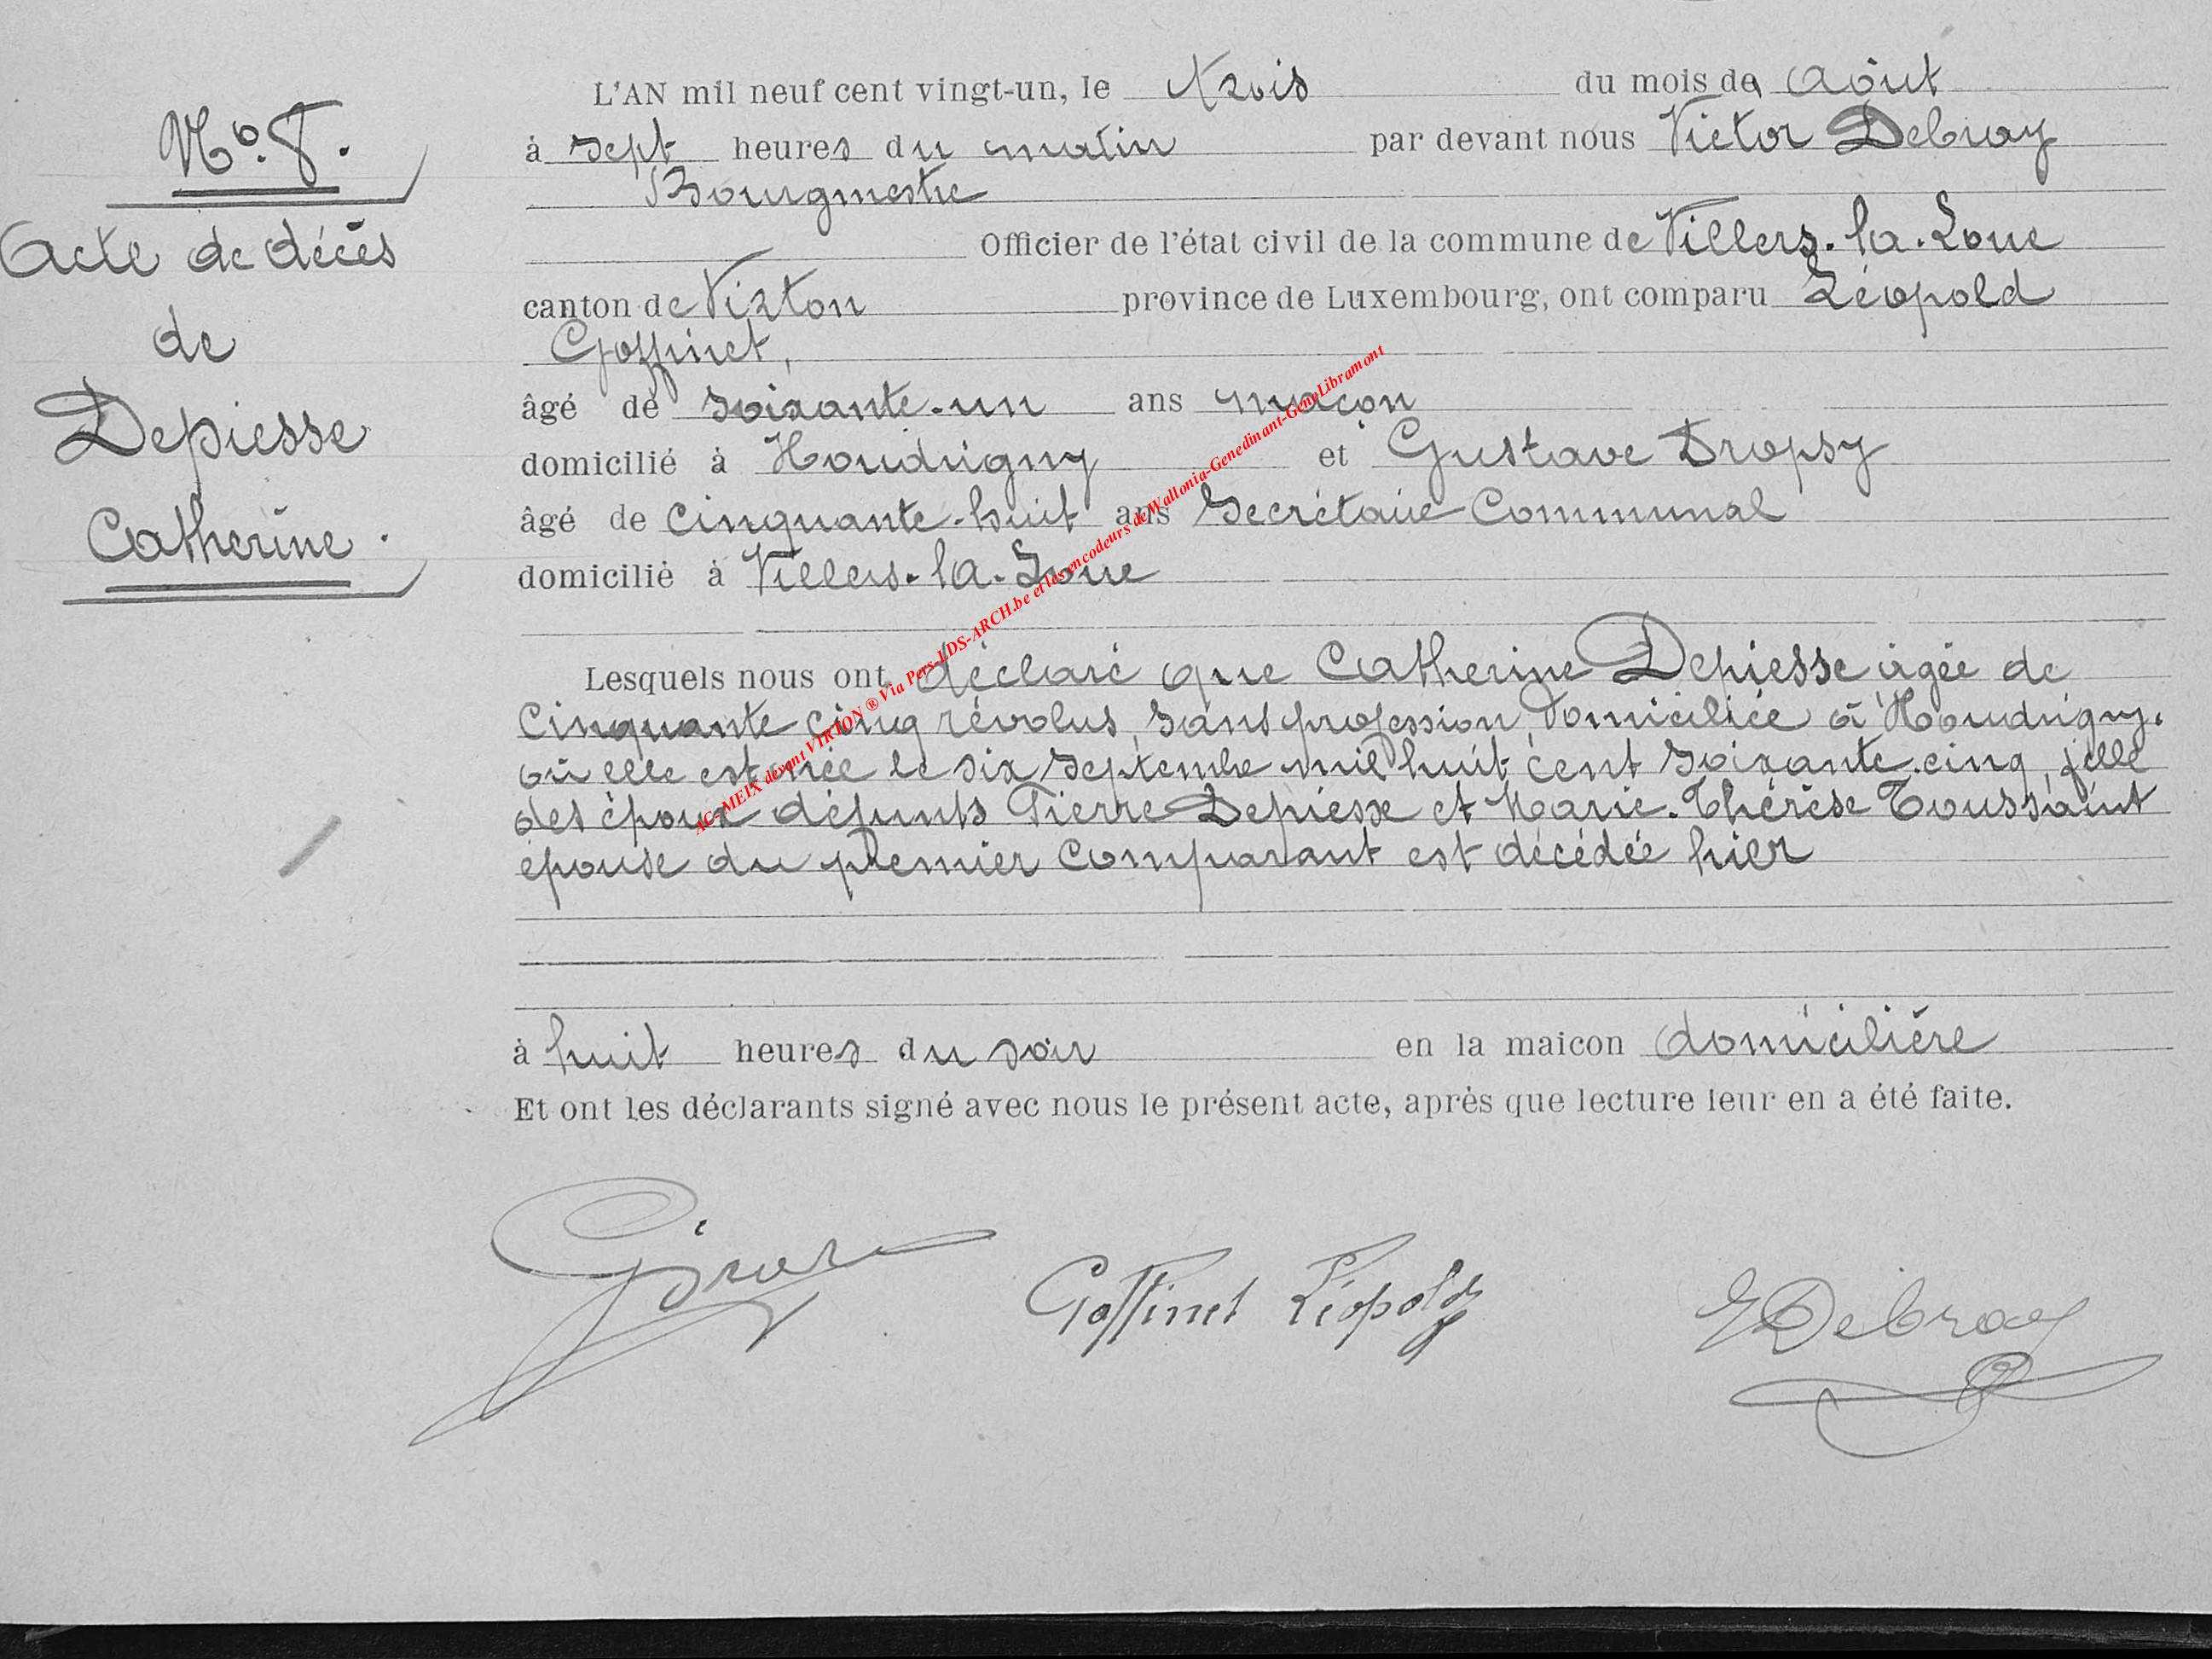 N° 8.
Acte de décès
de
Depiesse
Catherine.
L'AN mil neuf cent vingt-un, le trois du mois de Août
à sept heures du matin par devant nous Victor Debray
Bourgmestre
Officier de l'état civil de la commune de Villers-la-Loue
canton de Virton province de Luxembourg, ont comparu Léopold
Goffinet,
âgé de soixante-un ans maçon
domicilié à Houdrigny et Gustave Dropsy
âgé de cinquante-huit ans Secrétaire Communal
domicilié à Villers-la-Loue
Lesquels nous ont déclaré que Catherine Depiesse âgée de
cinquante cinq révolus, sans profession, domiciliée à Houdrigny.
où elle est née le six septembre mil huit cent soixante-cinq, fille
des époux défunts Pierre Depiesse et Marie-Thérèse Toussaint
épouse du premier comparant est décédée hier
à huit heures du soir en la maicon domicilière
Et ont les déclarants signé avec nous le présent acte, après que lecture leur en a été faite.
Goffinet Léopold
VDebray
AC-MEIX devant VIRTON ® Via Pers-LDS-ARCH.be et les encodeurs de Wallonia-Genedinant-GeneLibramont